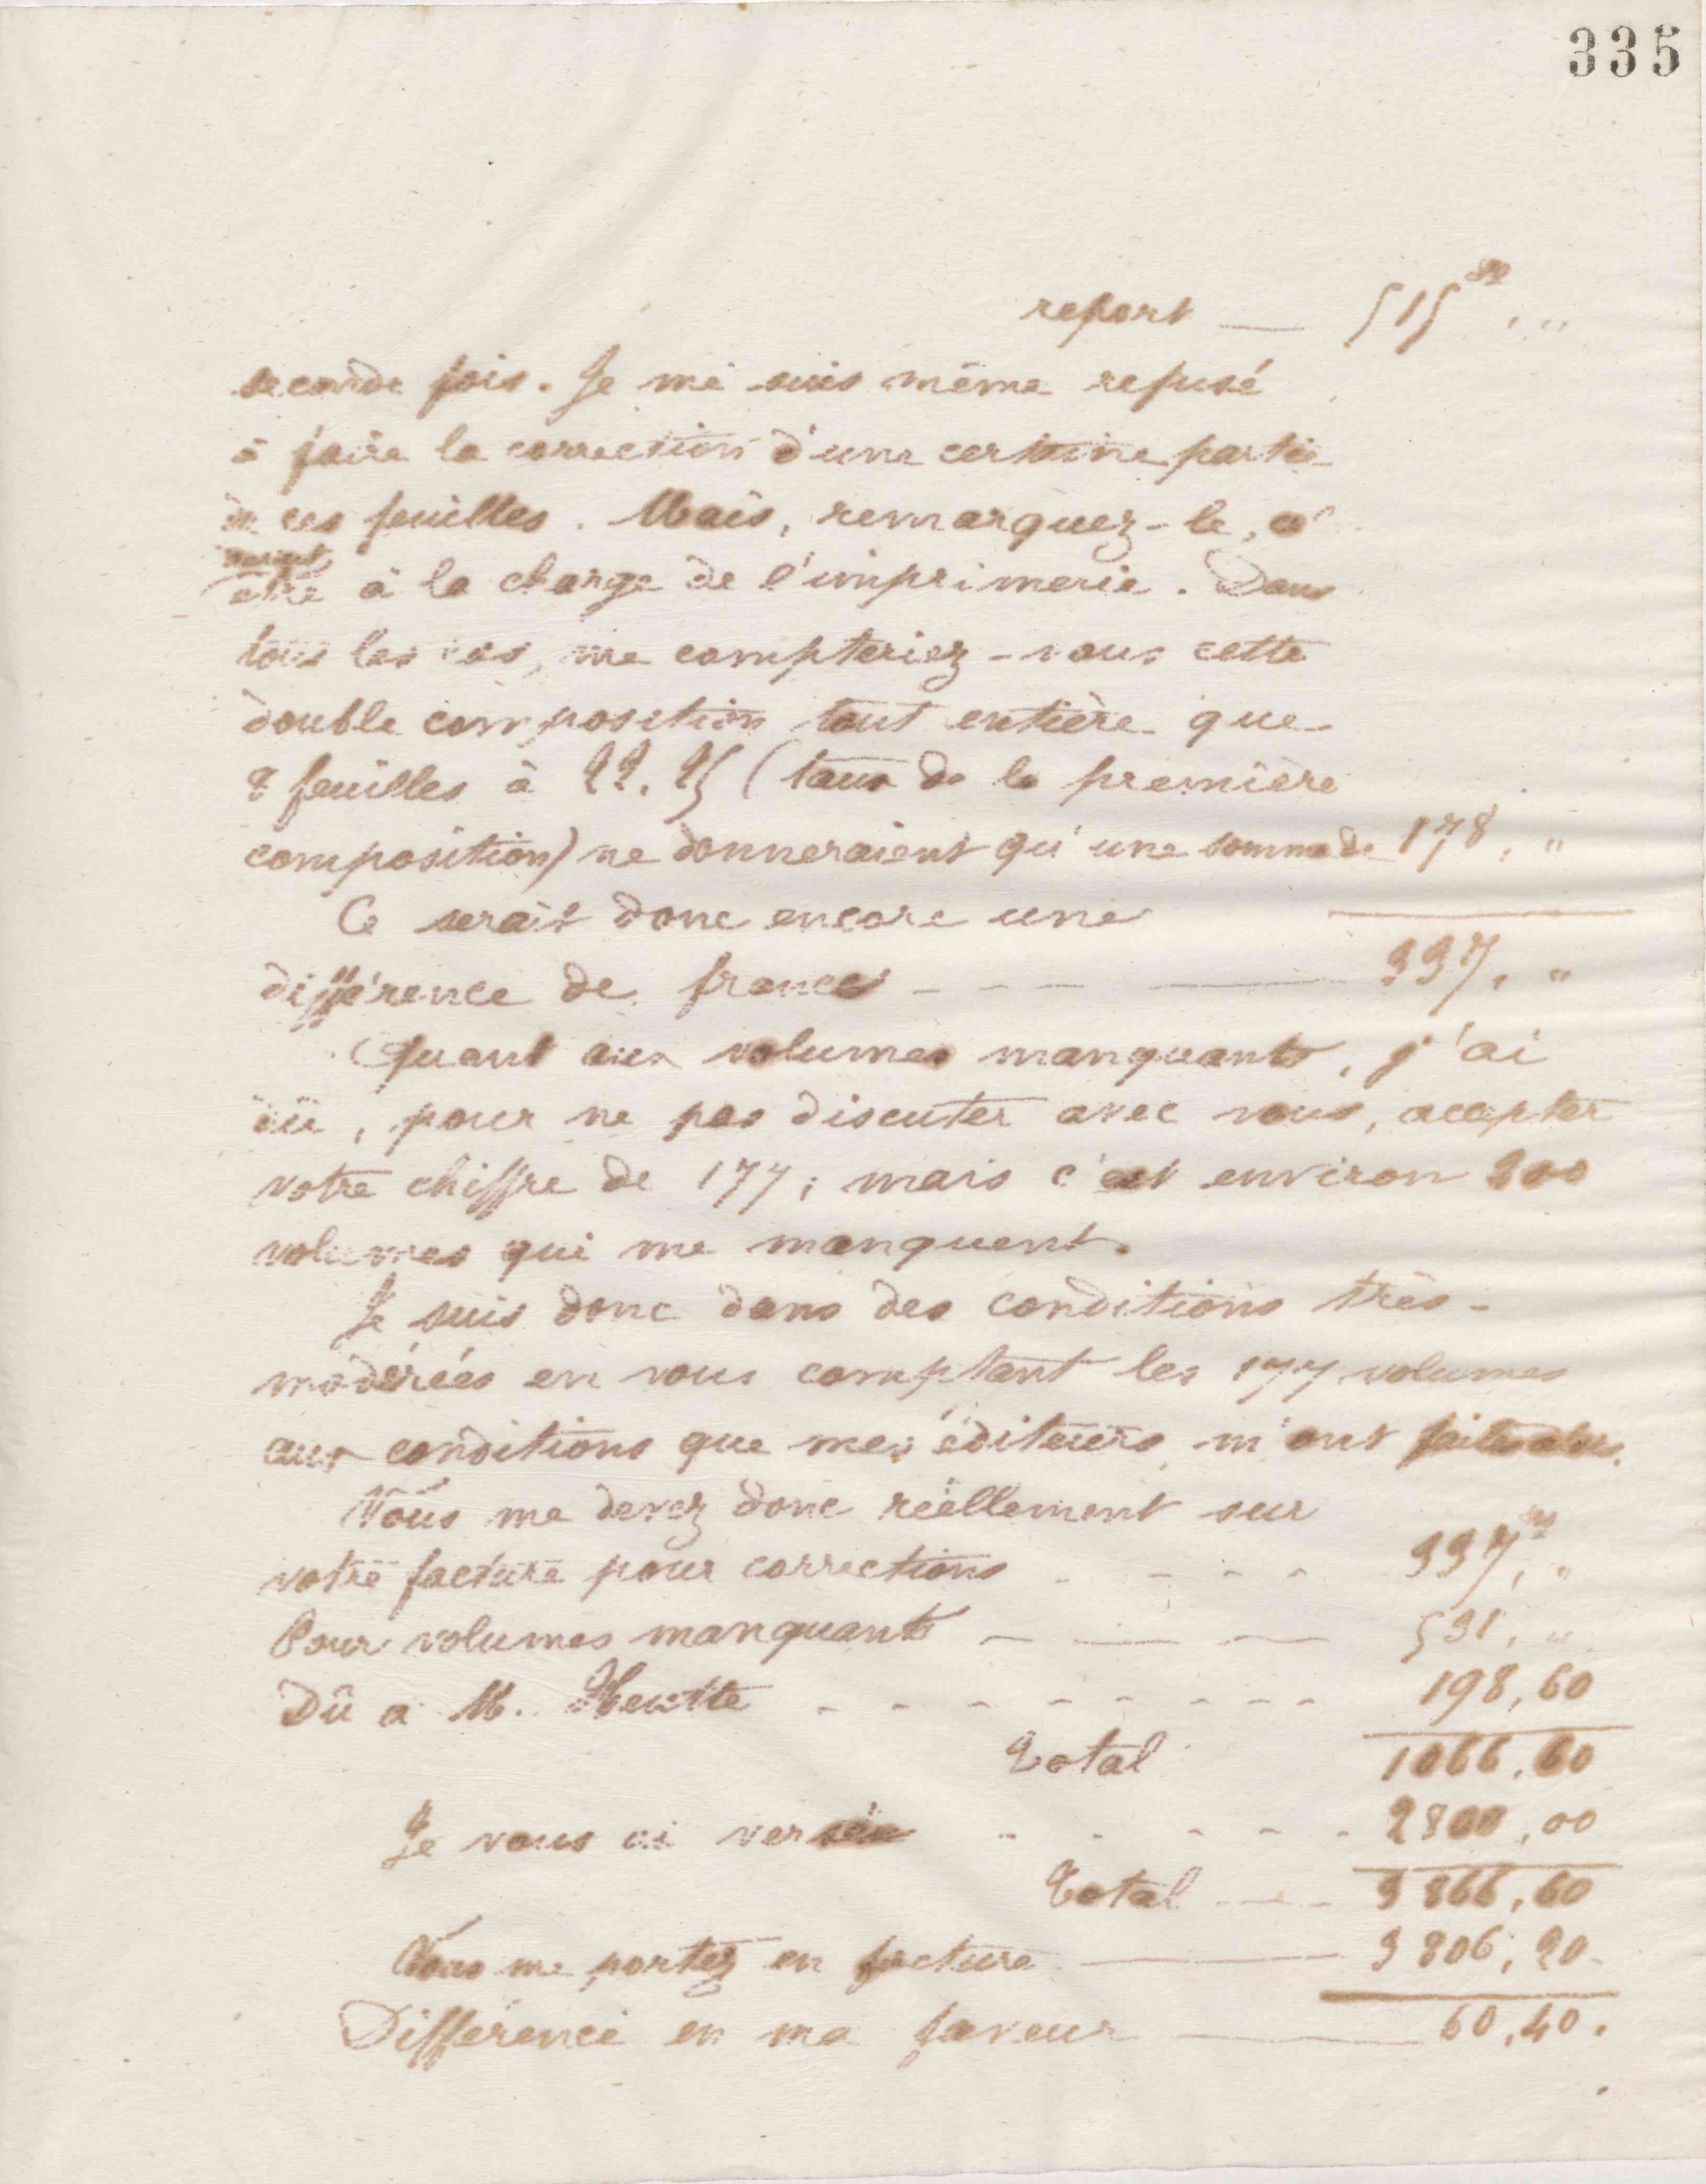 335
report — 515 fr , "
seconde fois. Je me suis même refusé
à faire la correction d'une certaine partie
de ces feuilles. Mais, remarquez-le, c'
devait
être à la charge de l'imprimerie. Dans
tous les cas, me compteriez-vous cette
double composition tout entière que
8 feuilles à 22.25 (taux de la première
composition) ne donneraient qu'une somme de 178, "
Ce serait donc encore une
différence de francs - - - — 337, "
Quant aux volumes manquants, j'ai
dû, pour ne pas discuter avec vous, accepter
votre chiffre de 177; mais c'est environ 200
volumes qui me manquent.
Je suis donc dans des conditions très-
modérées en vous comptant les 177 volumes
aux conditions que mes éditeurs m'ont
Vous me devez donc réellement sur
votre facture pour corrections - - - - 337 fr, "
Pour volumes manquants — — — 531, "
Dû à M. - - - - - - - - 198,60
Total 1066,60
Je vous ai versé - - - - - - 2800,00
Total — - 3866,60
Vous me portez en facture — 3806,20
Différence en ma faveur — 60,40.